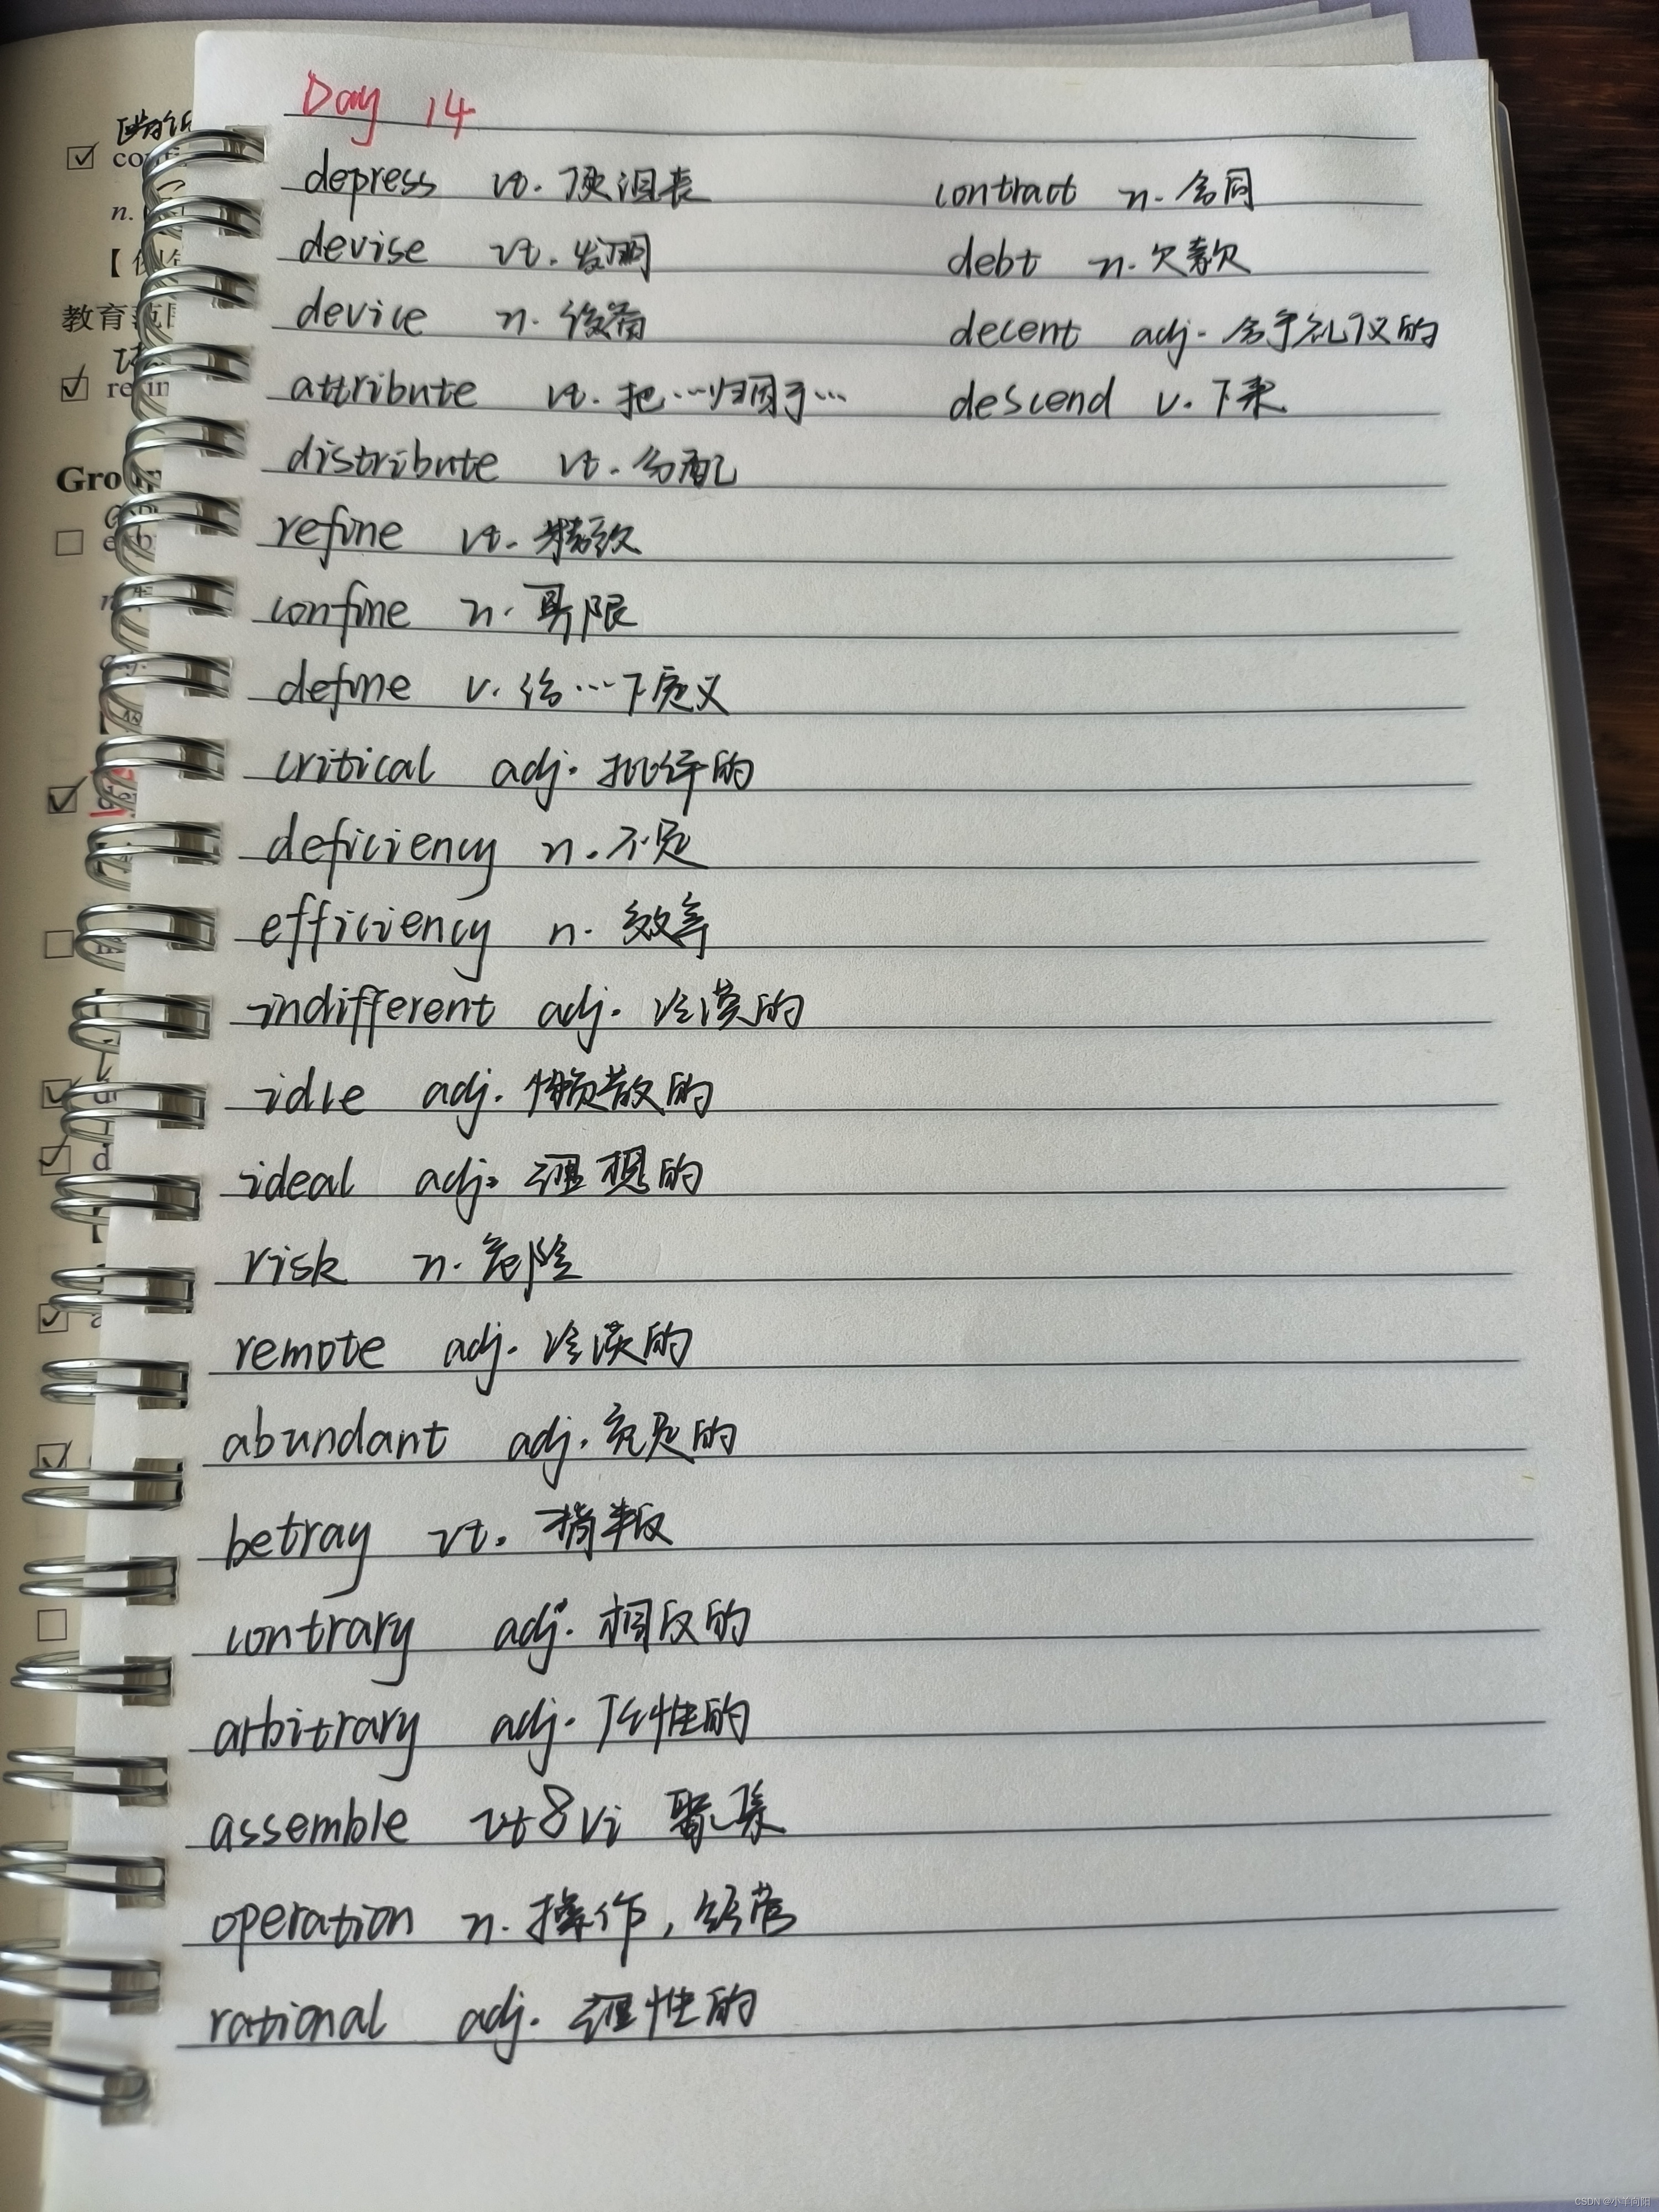 Day 14
depress vt. 使沮丧
devise vt. 发明
device n. 设备
attribute vt. 把…归因于…
distribute vt. 分配
refine vt. 精致
confine n. 界限
define v. 给…下定义
critical adj. 批评的
deficiency n. 不足
efficiency n. 效率
indifferent adj. 冷漠的
idle adj. 懒散的
ideal adj. 理想的
risk n. 危险
remote adj. 冷淡的
abundant adj. 充足的
betray vt. 背叛
contrary adj. 相反的
arbitrary adj. 任性的
assemble vt&vi 聚集
operation n. 操作, 经营
rational adj. 理性的
contract n. 合同
debt n. 欠款
decent adj. 合乎礼仪的
descend v. 下来
n.
教育范
Gro
d
CSDN @小羊向阳